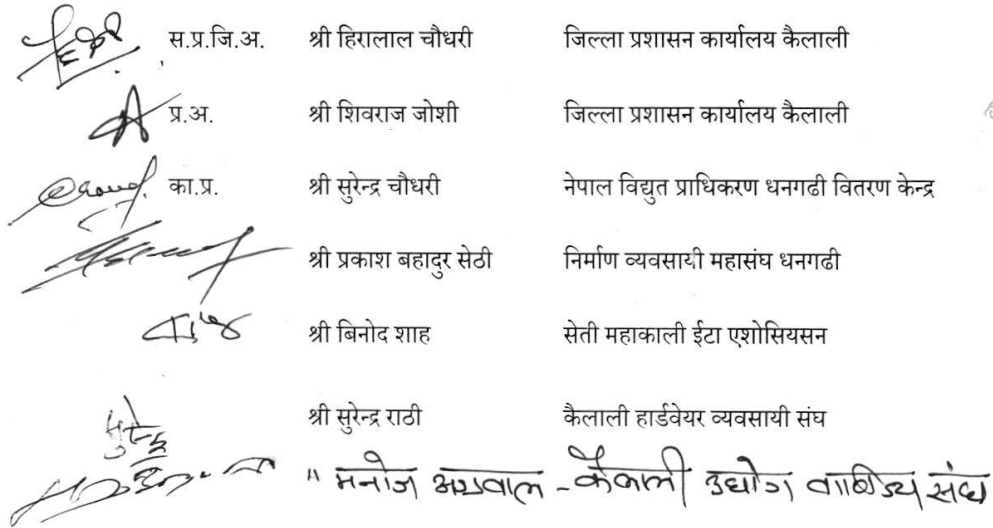 स.प्र.जि.अ. श्री हिरालाल चौधरी जिल्ला प्रशासन कार्यालय कैलाली
प्र.अ. श्री शिवराज जोशी जिल्ला प्रशासन कार्यालय कैलाली
का.प्र. श्री सुरेन्द्र चौधरी नेपाल विद्युत प्राधिकरण धनगढी वितरण केन्द्र
श्री प्रकाश बहादुर सेठी निर्माण व्यवसायी महासंघ धनगढी
श्री बिनोद शाह सेती महाकाली ईटा एशोसियसन
श्री सुरेन्द्र राठी कैलाली हार्डवेयर व्यवसायी संघ
" मनोज अग्रवाल - कैलाली उद्योग वाणिज्य संघ